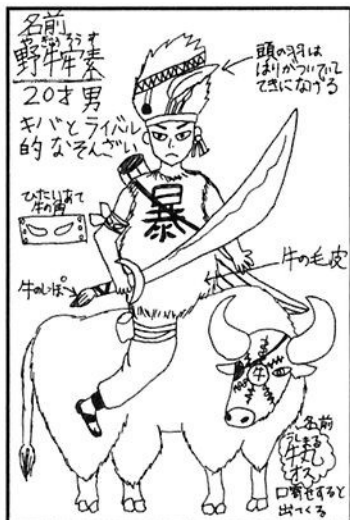 名前
やぎゅうそうす
野牛牢素
20才 男
キバとライバル
的なそんざい
頭の羽は
はりがついていて
てきになげる
ひたいあて
牛の角
暴
牛のしっぽ
牛の毛皮
牛
名前
うしまる
牛丸
オス
口寄せすると
出てくる